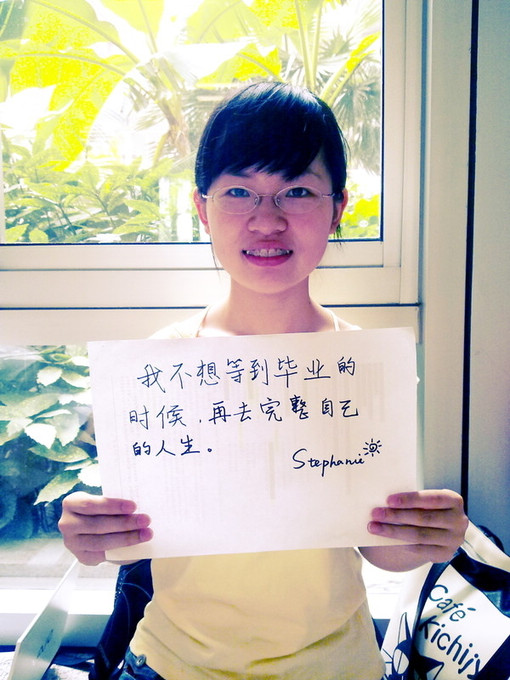 我不想等到毕业的
时候，再去完整自己
的人生。
Stephanie
Café
Kichijy